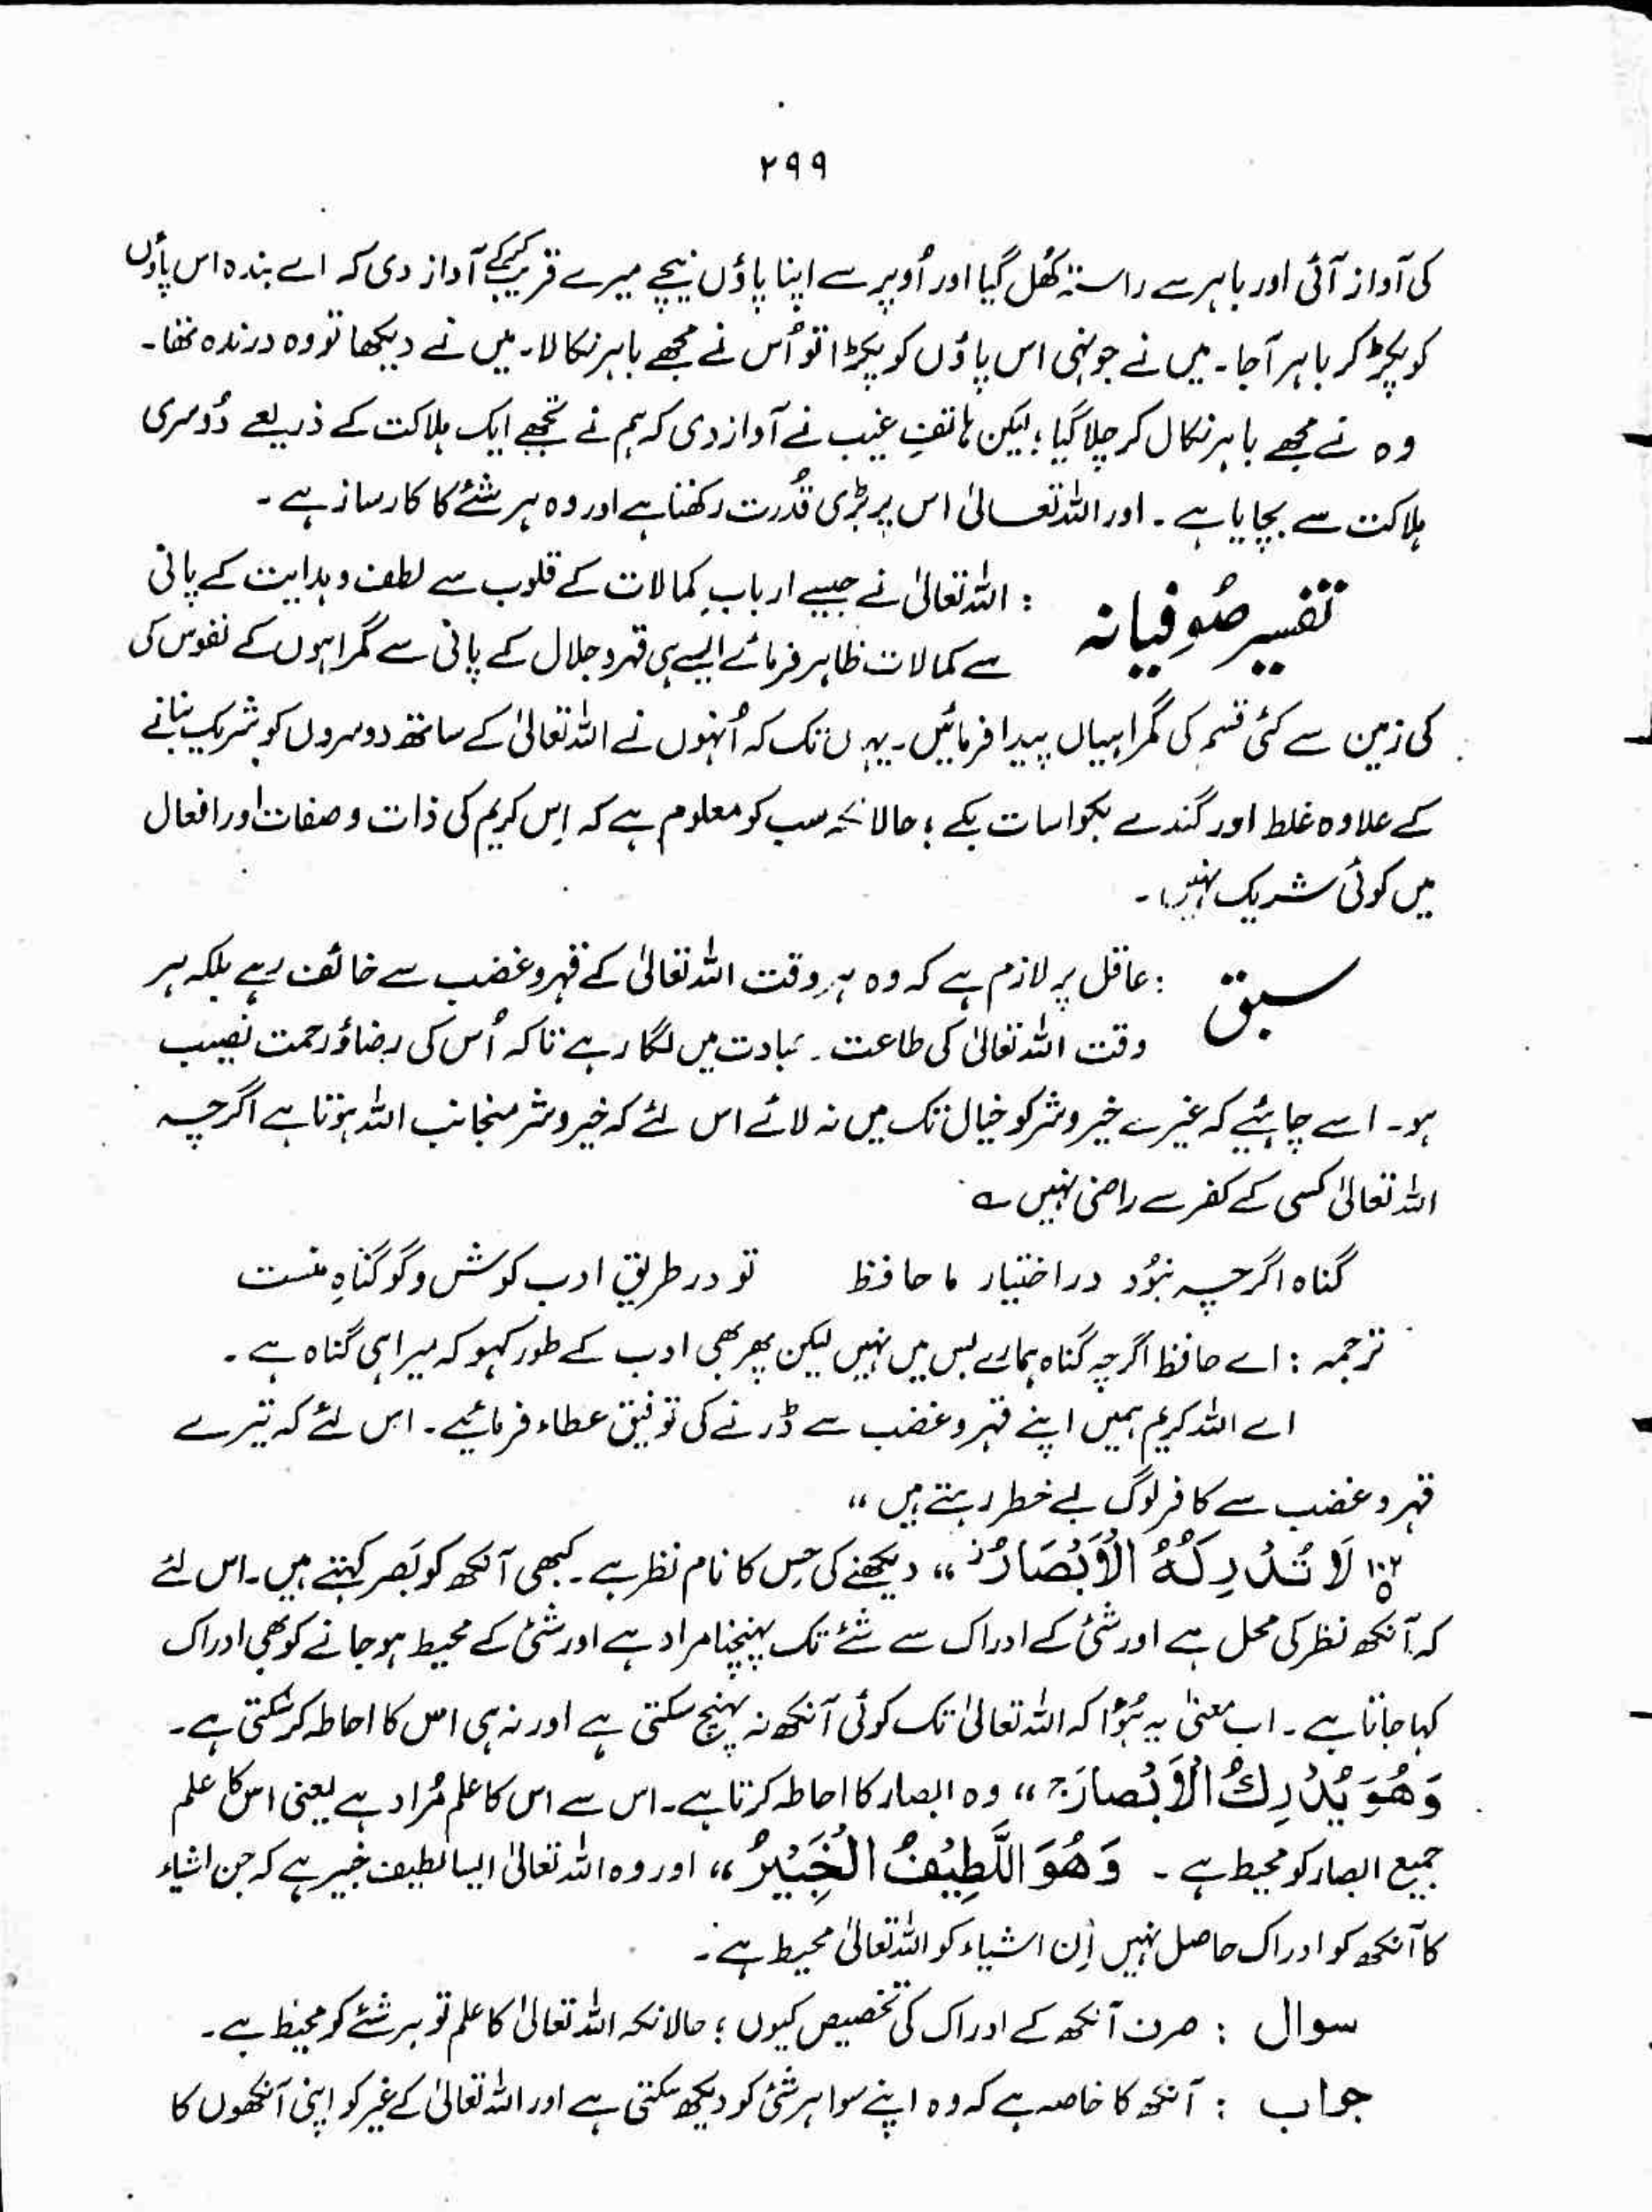 ۲۹۹
کی آواز آئی اور باہر سے راستہ کھُل گیا اور اُوپر سے اپنا پاؤں نیچے میرے قریب کرکے آواز دی کہ اے بندہ اس پاؤں
کو پکڑ کر باہر آجا۔ میں نے جونہی اس پاؤں کو پکڑا تو اُس نے مجھے باہر نکالا۔ میں نے دیکھا تو وہ درندہ تھا۔
وہ نے مجھے باہر نکال کر چلا گیا؛ لیکن ہاتفِ غیب نے آواز دی کہ ہم نے تجھے ایک ہلاکت کے ذریعے دُوسری
ہلاکت سے بچایا ہے۔ اور اللہ تعالیٰ اس پر بڑی قُدرت رکھتا ہے اور وہ ہر شئے کا کارساز ہے۔
تفسیر صُوفیانہ : اللہ تعالیٰ نے جیسے اربابِ کمالات کے قلوب سے لطف و ہدایت کے پانی
سے کمالات ظاہر فرمائے ایسے ہی قہر و جلال کے پانی سے گمراہوں کے نفوس کی
کی زمین سے کئی قسم کی گمراہیاں پیدا فرمائیں۔ یہاں تک کہ اُنہوں نے اللہ تعالیٰ کے ساتھ دوسروں کو شریک بنانے
کے علاوہ غلط اور گندے بکواسات بکے؛ حالانکہ سب کو معلوم ہے کہ اِس کریم کی ذات و صفات اور افعال
میں کوئی شریک نہیں۔
سبق : عاقل پر لازم ہے کہ وہ ہر وقت اللہ تعالیٰ کے قہر و غضب سے خائف رہے بلکہ ہر
وقت اللہ تعالیٰ کی طاعت و عبادت میں لگا رہے تاکہ اُس کی رضاؤ رحمت نصیب
ہو۔ اسے چاہئیے کہ غیر سے خیر و شر کو خیال تک میں نہ لائے اس لئے کہ خیر و شر منجانب اللہ ہوتا ہے اگرچہ
اللہ تعالیٰ کسی کے کفر سے راضی نہیں ؎
گناہ اگرچہ نبوُد در اختیار ما حافظ تو در طریقِ ادب کوش و گو گناہِ منست
ترجمہ : اے حافظ اگرچہ گناہ ہمارے بس میں نہیں لیکن پھر بھی ادب کے طور کہو کہ میرا ہی گناہ ہے۔
اے اللہ کریم ہمیں اپنے قہر و غضب سے ڈرنے کی توفیق عطاء فرمائیے۔ اس لئے کہ تیرے
قہر و غضب سے کافر لوگ بے خطر رہتے ہیں ،،
۱۰۲ لَا تُدْرِكُهُ الْاَبْصَارُ ،، دیکھنے کی حِس کا نام نظر ہے۔ کبھی آنکھ کو بَصر کہتے ہیں۔ اس لئے
کہ آنکھ نظر کی محل ہے اور شئ کے ادراک سے شئے تک پہنچنا مراد ہے اور شئ کے محیط ہو جانے کو بھی ادراک
کہا جاتا ہے۔ اب معنیٰ یہ ہُوا کہ اللہ تعالیٰ تک کوئی آنکھ نہ پہنچ سکتی ہے اور نہ ہی اس کا احاطہ کر سکتی ہے۔
وَهُوَ يُدْرِكُ الْاَبْصَارَ ،، وہ ابصار کا احاطہ کرتا ہے۔ اس سے اس کا علم مُراد ہے یعنی اس کا علم
جمیع ابصار کو محیط ہے۔ وَهُوَ اللَّطِيْفُ الْخَبِيْرُ ،، اور وہ اللہ تعالیٰ ایسا لطیف خبیر ہے کہ جن اشیاء
کا آنکھ کو ادراک حاصل نہیں اِن اشیاء کو اللہ تعالیٰ محیط ہے۔
سوال : صرف آنکھ کے ادراک کی تخصیص کیوں؛ حالانکہ اللہ تعالیٰ کا علم تو ہر شئے کو محیط ہے۔
جواب : آنکھ کا خاصہ ہے کہ وہ اپنے سوا ہر شئ کو دیکھ سکتی ہے اور اللہ تعالیٰ کے غیر کو اپنی آنکھوں کا